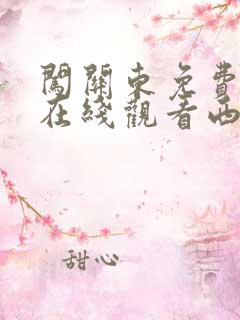 闖關東免費
在綫觀看西
甜心